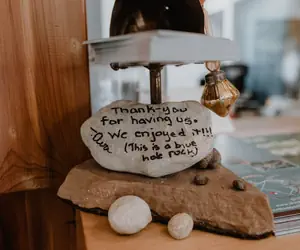 Thank-you
for having us.
We enjoyed it!!!
(This is a blue
hole rock)